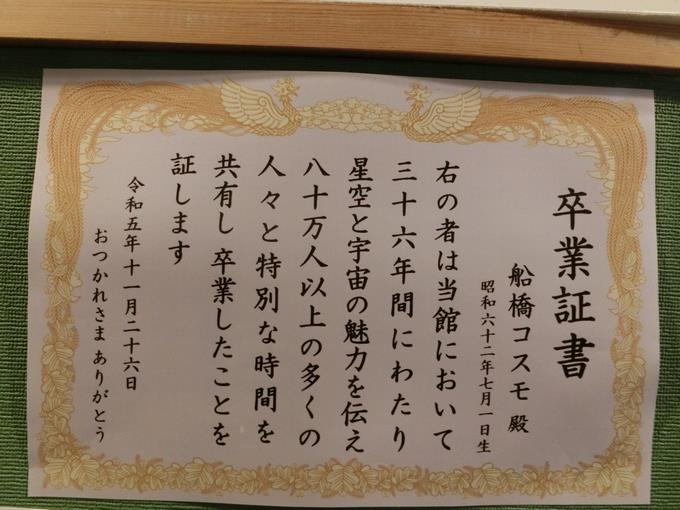 卒業証書
船橋コスモ 殿
昭和六十二年七月一日生
右の者は当館において
三十六年間にわたり
星空と宇宙の魅力を伝え
八十万人以上の多くの
人々と特別な時間を
共有し 卒業したことを
証します
令和五年 十一月二十六日
おつかれさま ありがとう